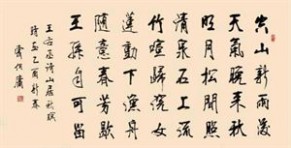 空山新雨後
天氣晚来秋
明月松間照
清泉石上流
竹喧歸浣女
蓮動下漁舟
隨意春芳歇
王孫自可留
詩山居秋暝
乙酉